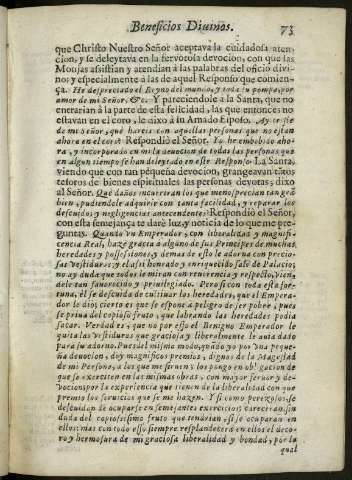 Beneficios Diuinos. 73
que Christo Nuestro Señor aceptava la cuidadosa aten-
cion, y se deleytava en la fervorosa devocion, con que las
Monjas assistian y atendian à las palabras del oficio divi-
no; y especialmente à las de aquel Responso que comien-
ça. He despreciado el Reyno del mundo, y toda su pompa, por
amor de mi Señor, &c. Y pareciendole a la Santa, que no
entrarian à la parte de esta felicidad, las que entonces no
estavan en el coro, le dixo à su Amado Esposo.
de mi Señor, què hareis con aquellas personas que no estan
ahora en el coro? Respondiò el Señor. Yo he embebido aho-
ra, y incorporado en mi la devocion de todas las personas que
en algun tiempo se han deleytado en este Responso. La Santa,
viendo que con tan pequeña devocion, grangeavan tãtos
tesoros de bienes espirituales las personas devotas; dixo
al Señor. Què daños incurriran los que menosprecian tan grã
bien, pudiendole adquirir con tanta facilidad, y reparar los
descuidos, y negligencias antecendente? Respondiò el Señor,
con esta semejança te darè luz, y noticia de lo que me pre-
guntas. Quando vn Emperador, con liberalidad y magnifi-
cencia Real, haze gracia à alguno de sus Principes de muchas
heredades y possessiones, y demas de esto le adorna con precio-
sas vestiduras; y el assi honrado y enriquezido sale de Palacio;
no ay duda que todos le miran con reuerencia y respecto, vien-
dole tan fauorecido y priuilegiado. Pero si con toda esta for-
tuna, èl se descuida de cultiuar las heredades, que el Empera-
dor le diò; cierto es que se espone à peligro de ser pobre, pues
se priua del copioso fruto, que labrando las heredades podia
sacar. Verdad es, que no por esso el Benigno Emperador le
quita las vestiduras que graciosa y liberalmente le auia dado
para su adorno. Pues del mismo modo, quando yo por vna peque-
ña deuocion, doy magnificos premios, dignos de la Magestad
de mi Persona, à los que me siruen; los pongo en obligacion de
que se exerciten en las mismas obras, con mayor feruor y de-
vocion; por la experiencia que tienen de la liberalidad con que
premio los seruicios que se me hazen. Y si como perezosos, se
descuidan de ocuparse en semejantes exercicios; careceràn sin
duda del copiosissimo fruto que tendrian, si se ocuparan en
ellos: mas con todo esso siempre resplandecerà en ellos el deco-
ro y hermosura de mi graciosa liberalidad y bondad, por la
qual